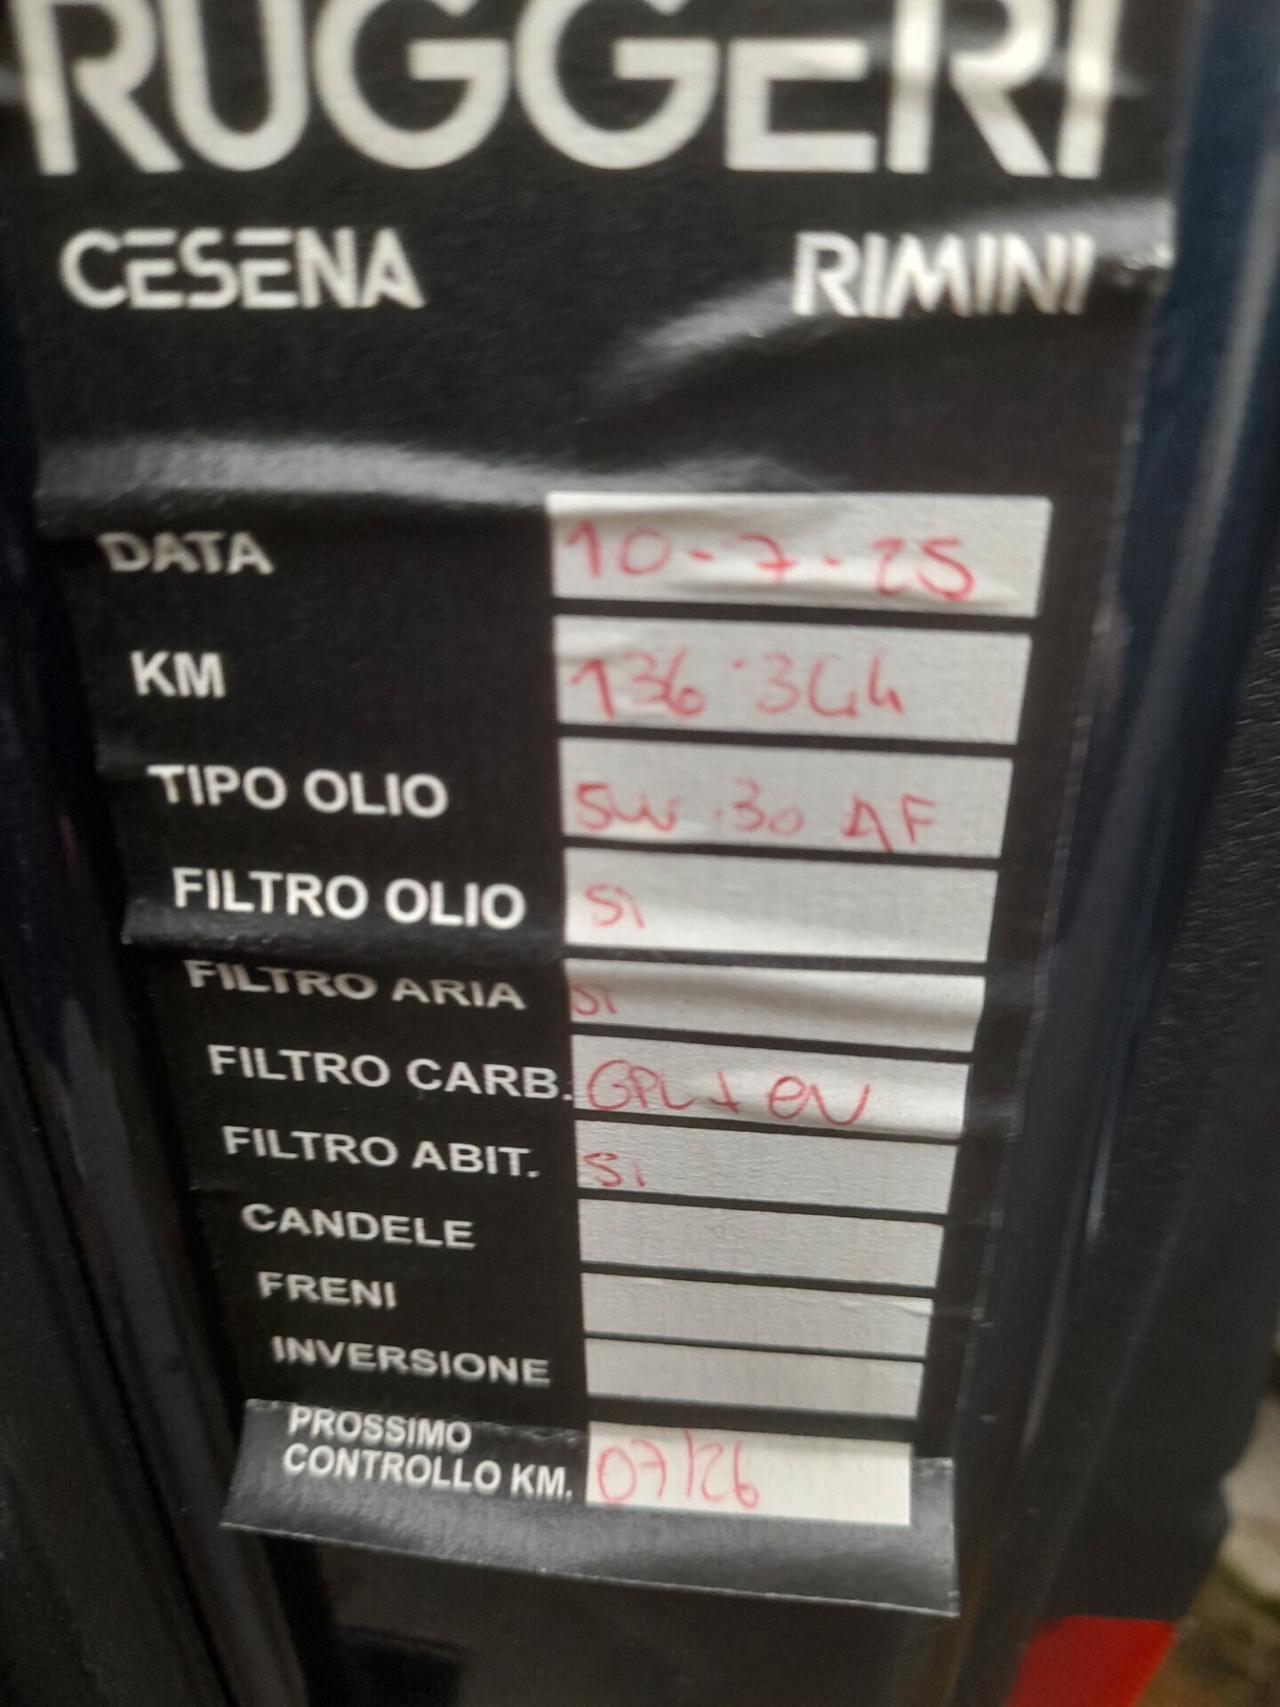 RUGGERI
CESENA RIMINI
DATA 10-7-25
KM 136.344
TIPO OLIO 5W.30 AF
FILTRO OLIO Si
FILTRO ARIA Si
FILTRO CARB. GPL+
FILTRO ABIT. Si
CANDELE
FRENI
INVERSIONE
PROSSIMO
CONTROLLO KM. 07/26